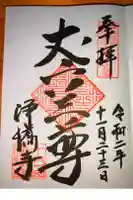 奉拝
令和二年
十一月二十三日
丈六三尊
浄橋寺